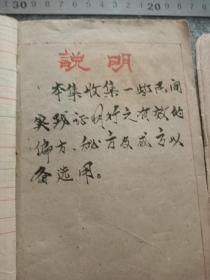 説明
本集收集一些民间
实践证明行之有效的
偏方、秘方及成方以
备选用。